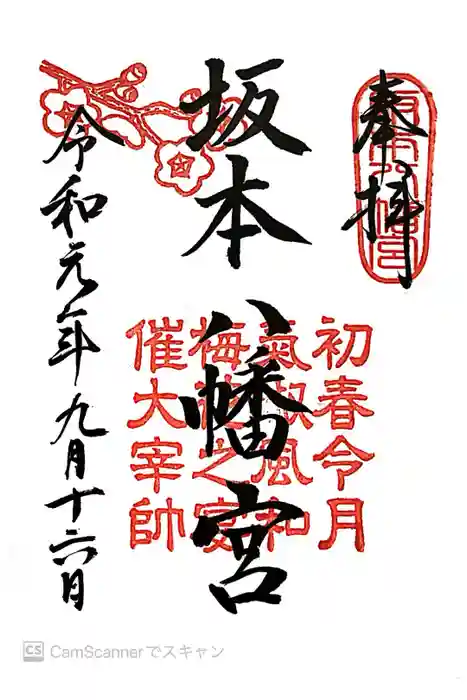 奉拝
坂本八幡宮
坂本八幡宮
初春令月
氣淑風和
梅花之宴
催大宰帥
令和元年九月十六日
CS CamScannerでスキャン